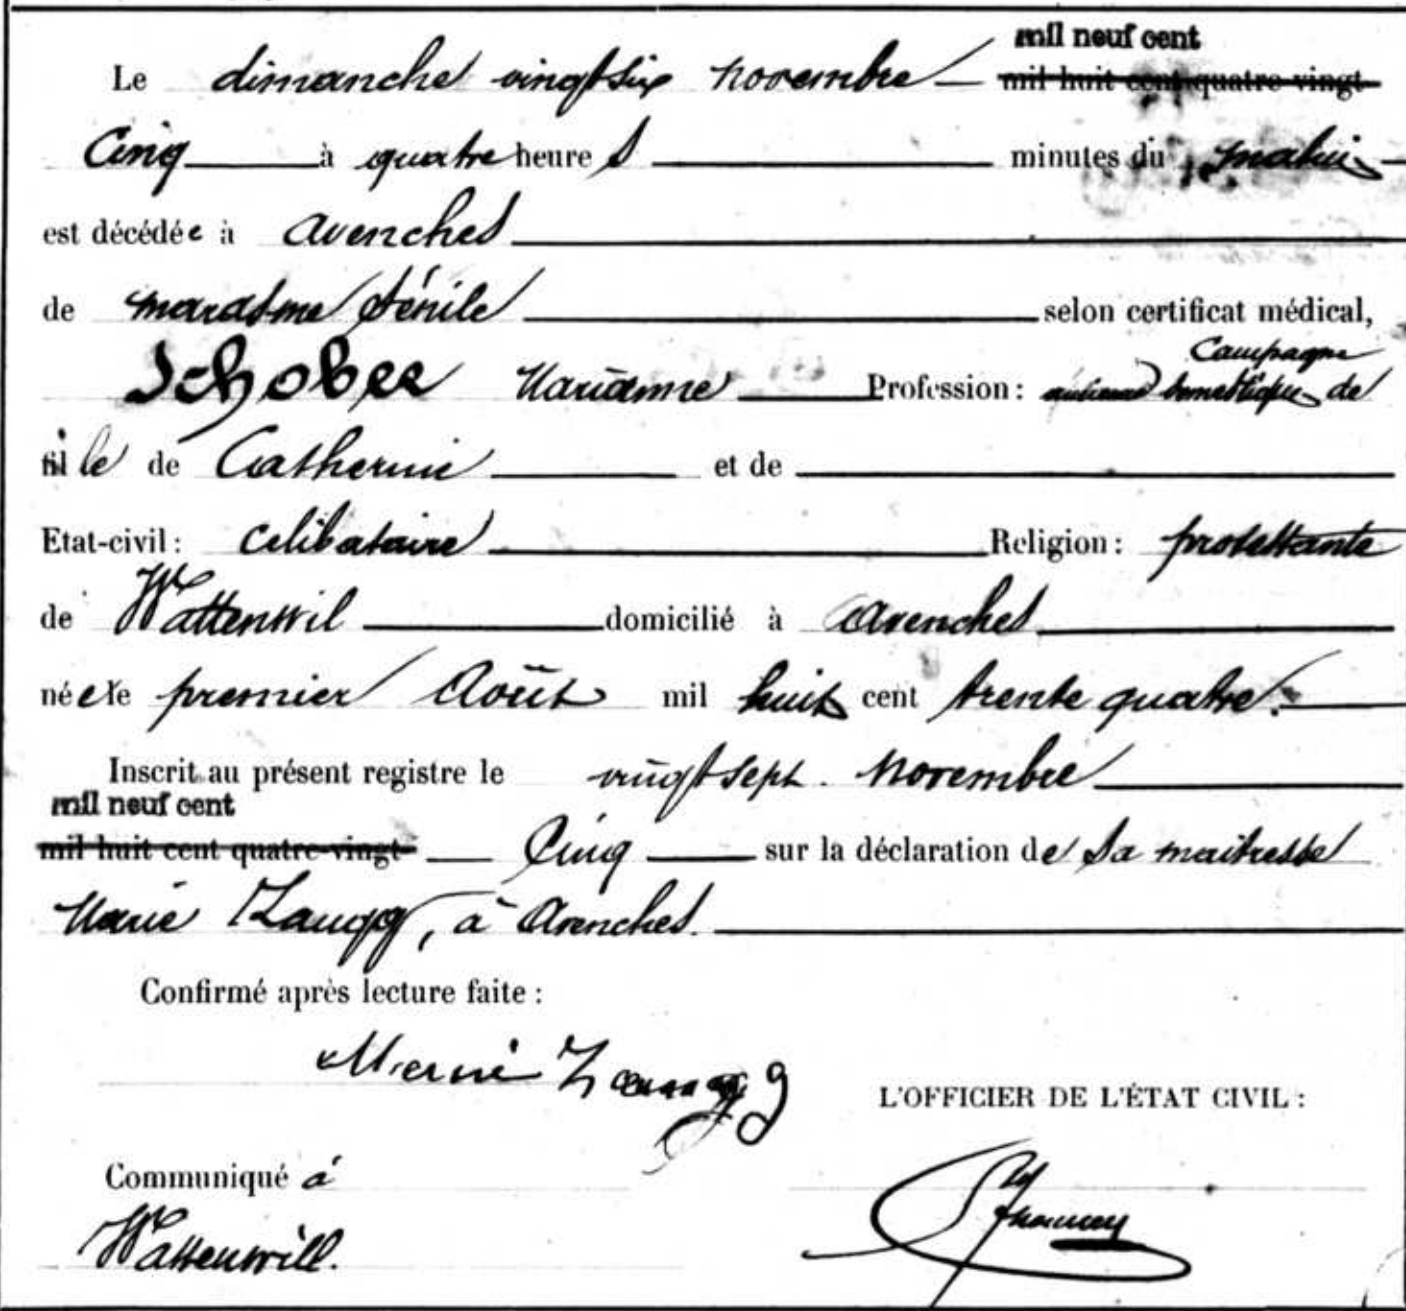 mil neuf cent
Le dimanche vingt six novembre — mil huit cent quatre-vingt
Cinq à quatre heure s minutes du matin
est décédée à Avenches
de marasme sénile selon certificat médical,
Campagne
Schober Marianne Profession : ancienne domestique de
fille de Catherine et de
Etat-civil : Célibataire Religion : protestante
de Wattenwil domicilié à Avenches
née le premier Août mil huit cent trente quatre.
Inscrit au présent registre le vingt sept. Novembre
mil neuf cent
mil huit cent quatre-vingt — Cinq sur la déclaration de sa maîtresse
Marie Zaugg, à Avenches.
Confirmé après lecture faite :
Marie Zaugg
L'OFFICIER DE L'ÉTAT CIVIL :
Communiqué à
Wattenwill.